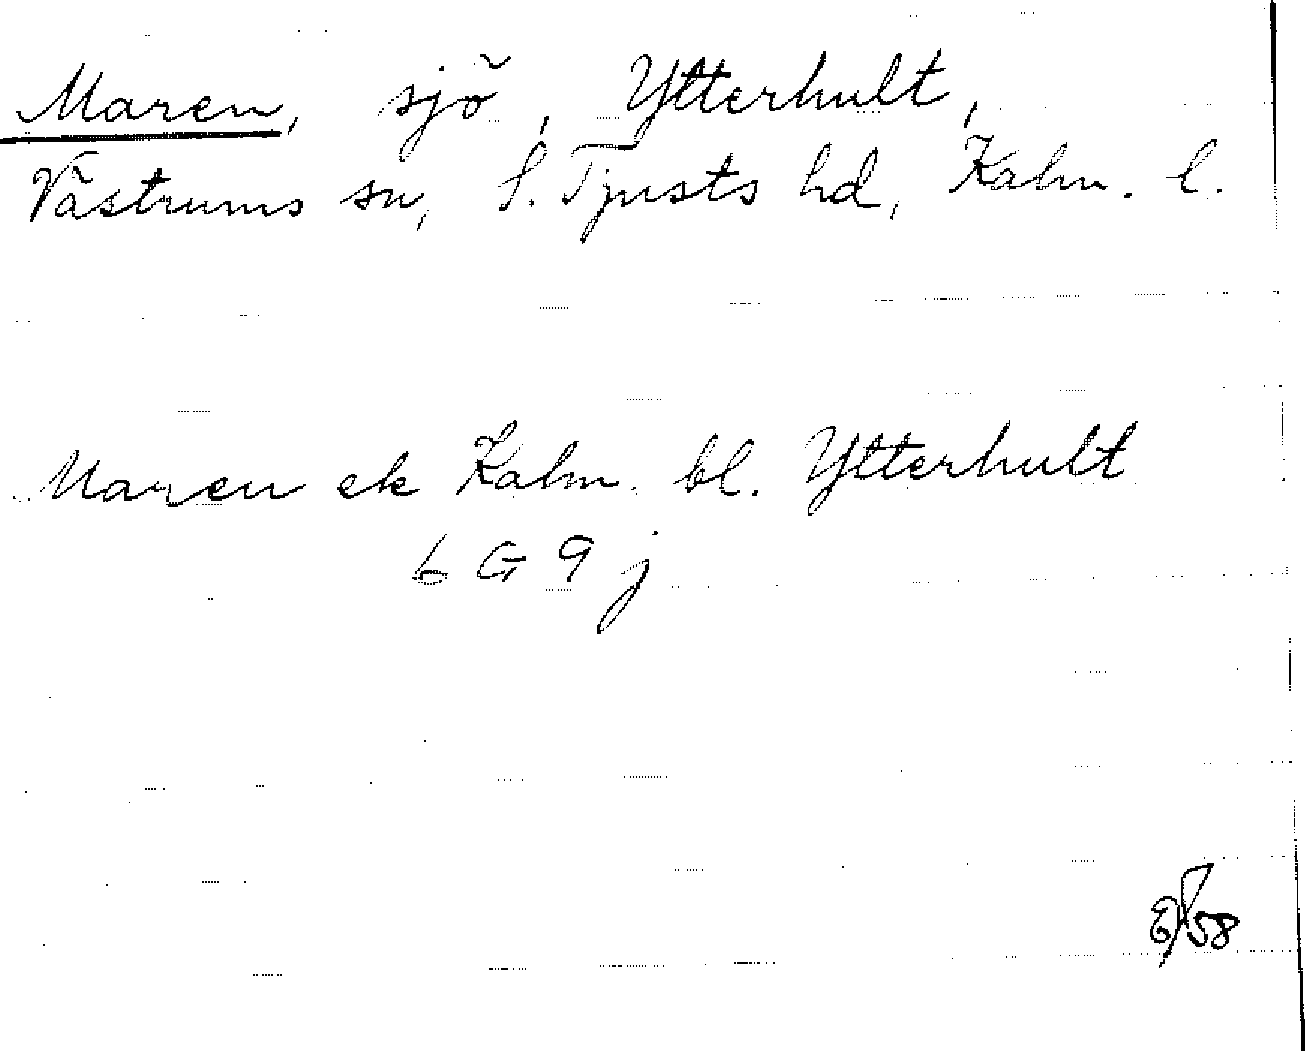 Maren, sjö, Ytterhult,
Västrums sn, S. Tjusts hd, Kalm. l.
Maren ek Kalm. bl. Ytterhult
6 G 9 j
58